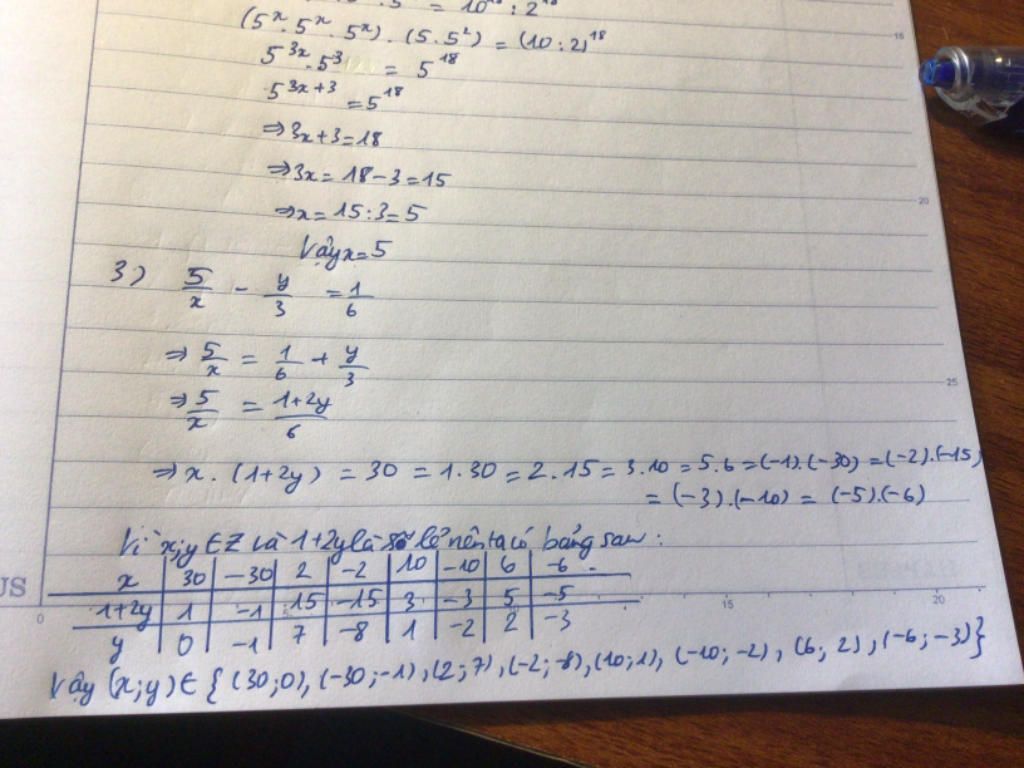 5 = 10¹⁸ : 2¹⁸
(5ˣ . 5ˣ . 5ˣ) . (5 . 5²) = (10 : 2)¹⁸
5³ˣ . 5³ = 5¹⁸
5³ˣ⁺³ = 5¹⁸
⇒ 3x + 3 = 18
⇒ 3x = 18 - 3 = 15
⇒ x = 15 : 3 = 5
Vậy x = 5
3) 5/x - y/3 = 1/6
⇒ 5/x = 1/6 + y/3
⇒ 5/x = (1+2y)/6
⇒ x . (1+2y) = 30 = 1.30 = 2.15 = 3.10 = 5.6 = (-1).(-30) = (-2).(-15)
= (-3).(-10) = (-5).(-6)
Vì x;y ∈ Z và 1+2y là số lẻ nên ta có bảng sau :
x | 30 | -30 | 2 | -2 | 10 | -10 | 6 | -6
1+2y | 1 | -1 | 15 | -15 | 3 | -3 | 5 | -5
y | 0 | -1 | 7 | -8 | 1 | -2 | 2 | -3
Vậy (x;y) ∈ { (30;0), (-30;-1), (2;7), (-2;-8), (10;1), (-10;-2), (6;2), (-6;-3) }
15
20
25
US
0
15
20